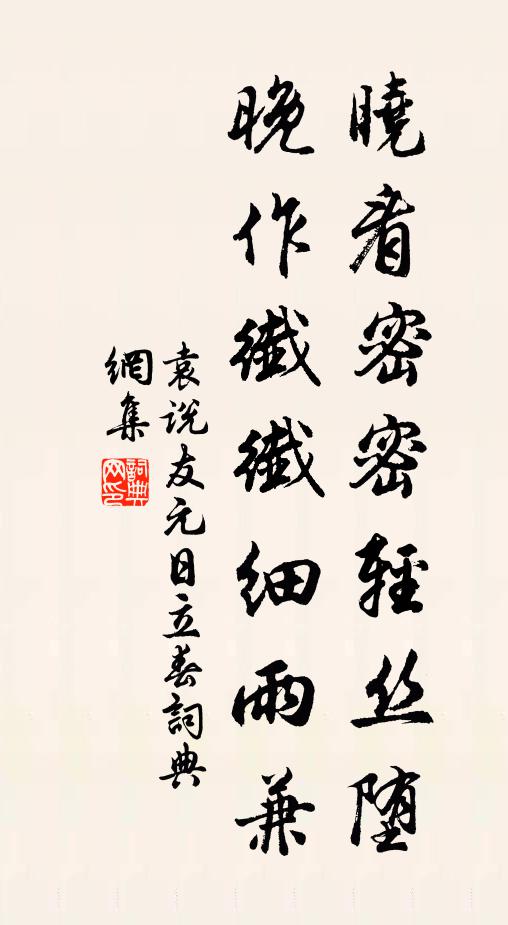 曉看密密輕丝堕
晚作纖纖細雨兼
袁说友元日立春詞典
網集
詞典網印